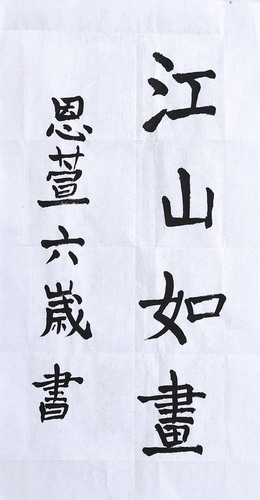 江山如畫
恩萱六歲書